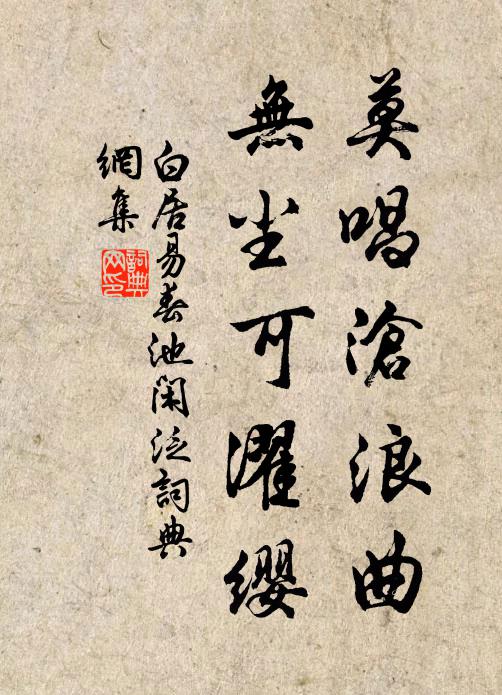 莫唱滄浪曲
無尘可濯缨
白居易春池闲泛詞典
網集
詞典
网印